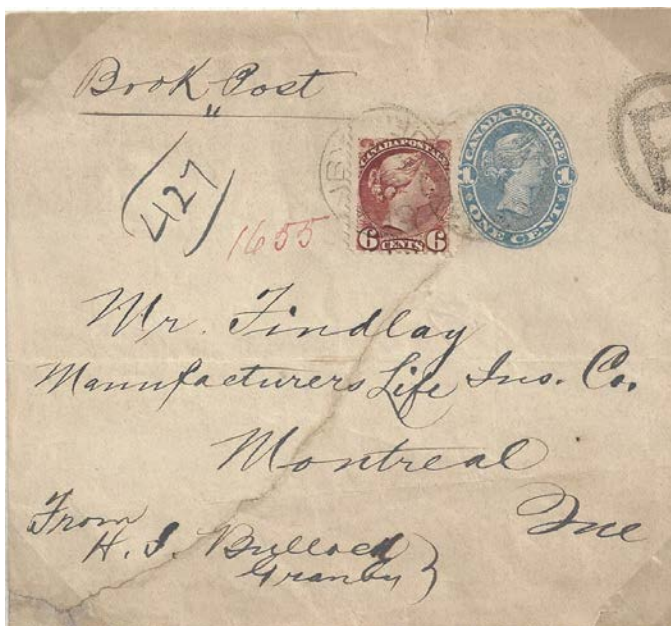 Book Post
"
(427)
1655
CANADA POSTAGE
6 CENTS 6
CANADA POSTAGE
1 1
ONE CENT
Mr. Findlay
Manufacturers Life Ins. Co.
Montreal
Que
From
H. I. Bullock
Granby }